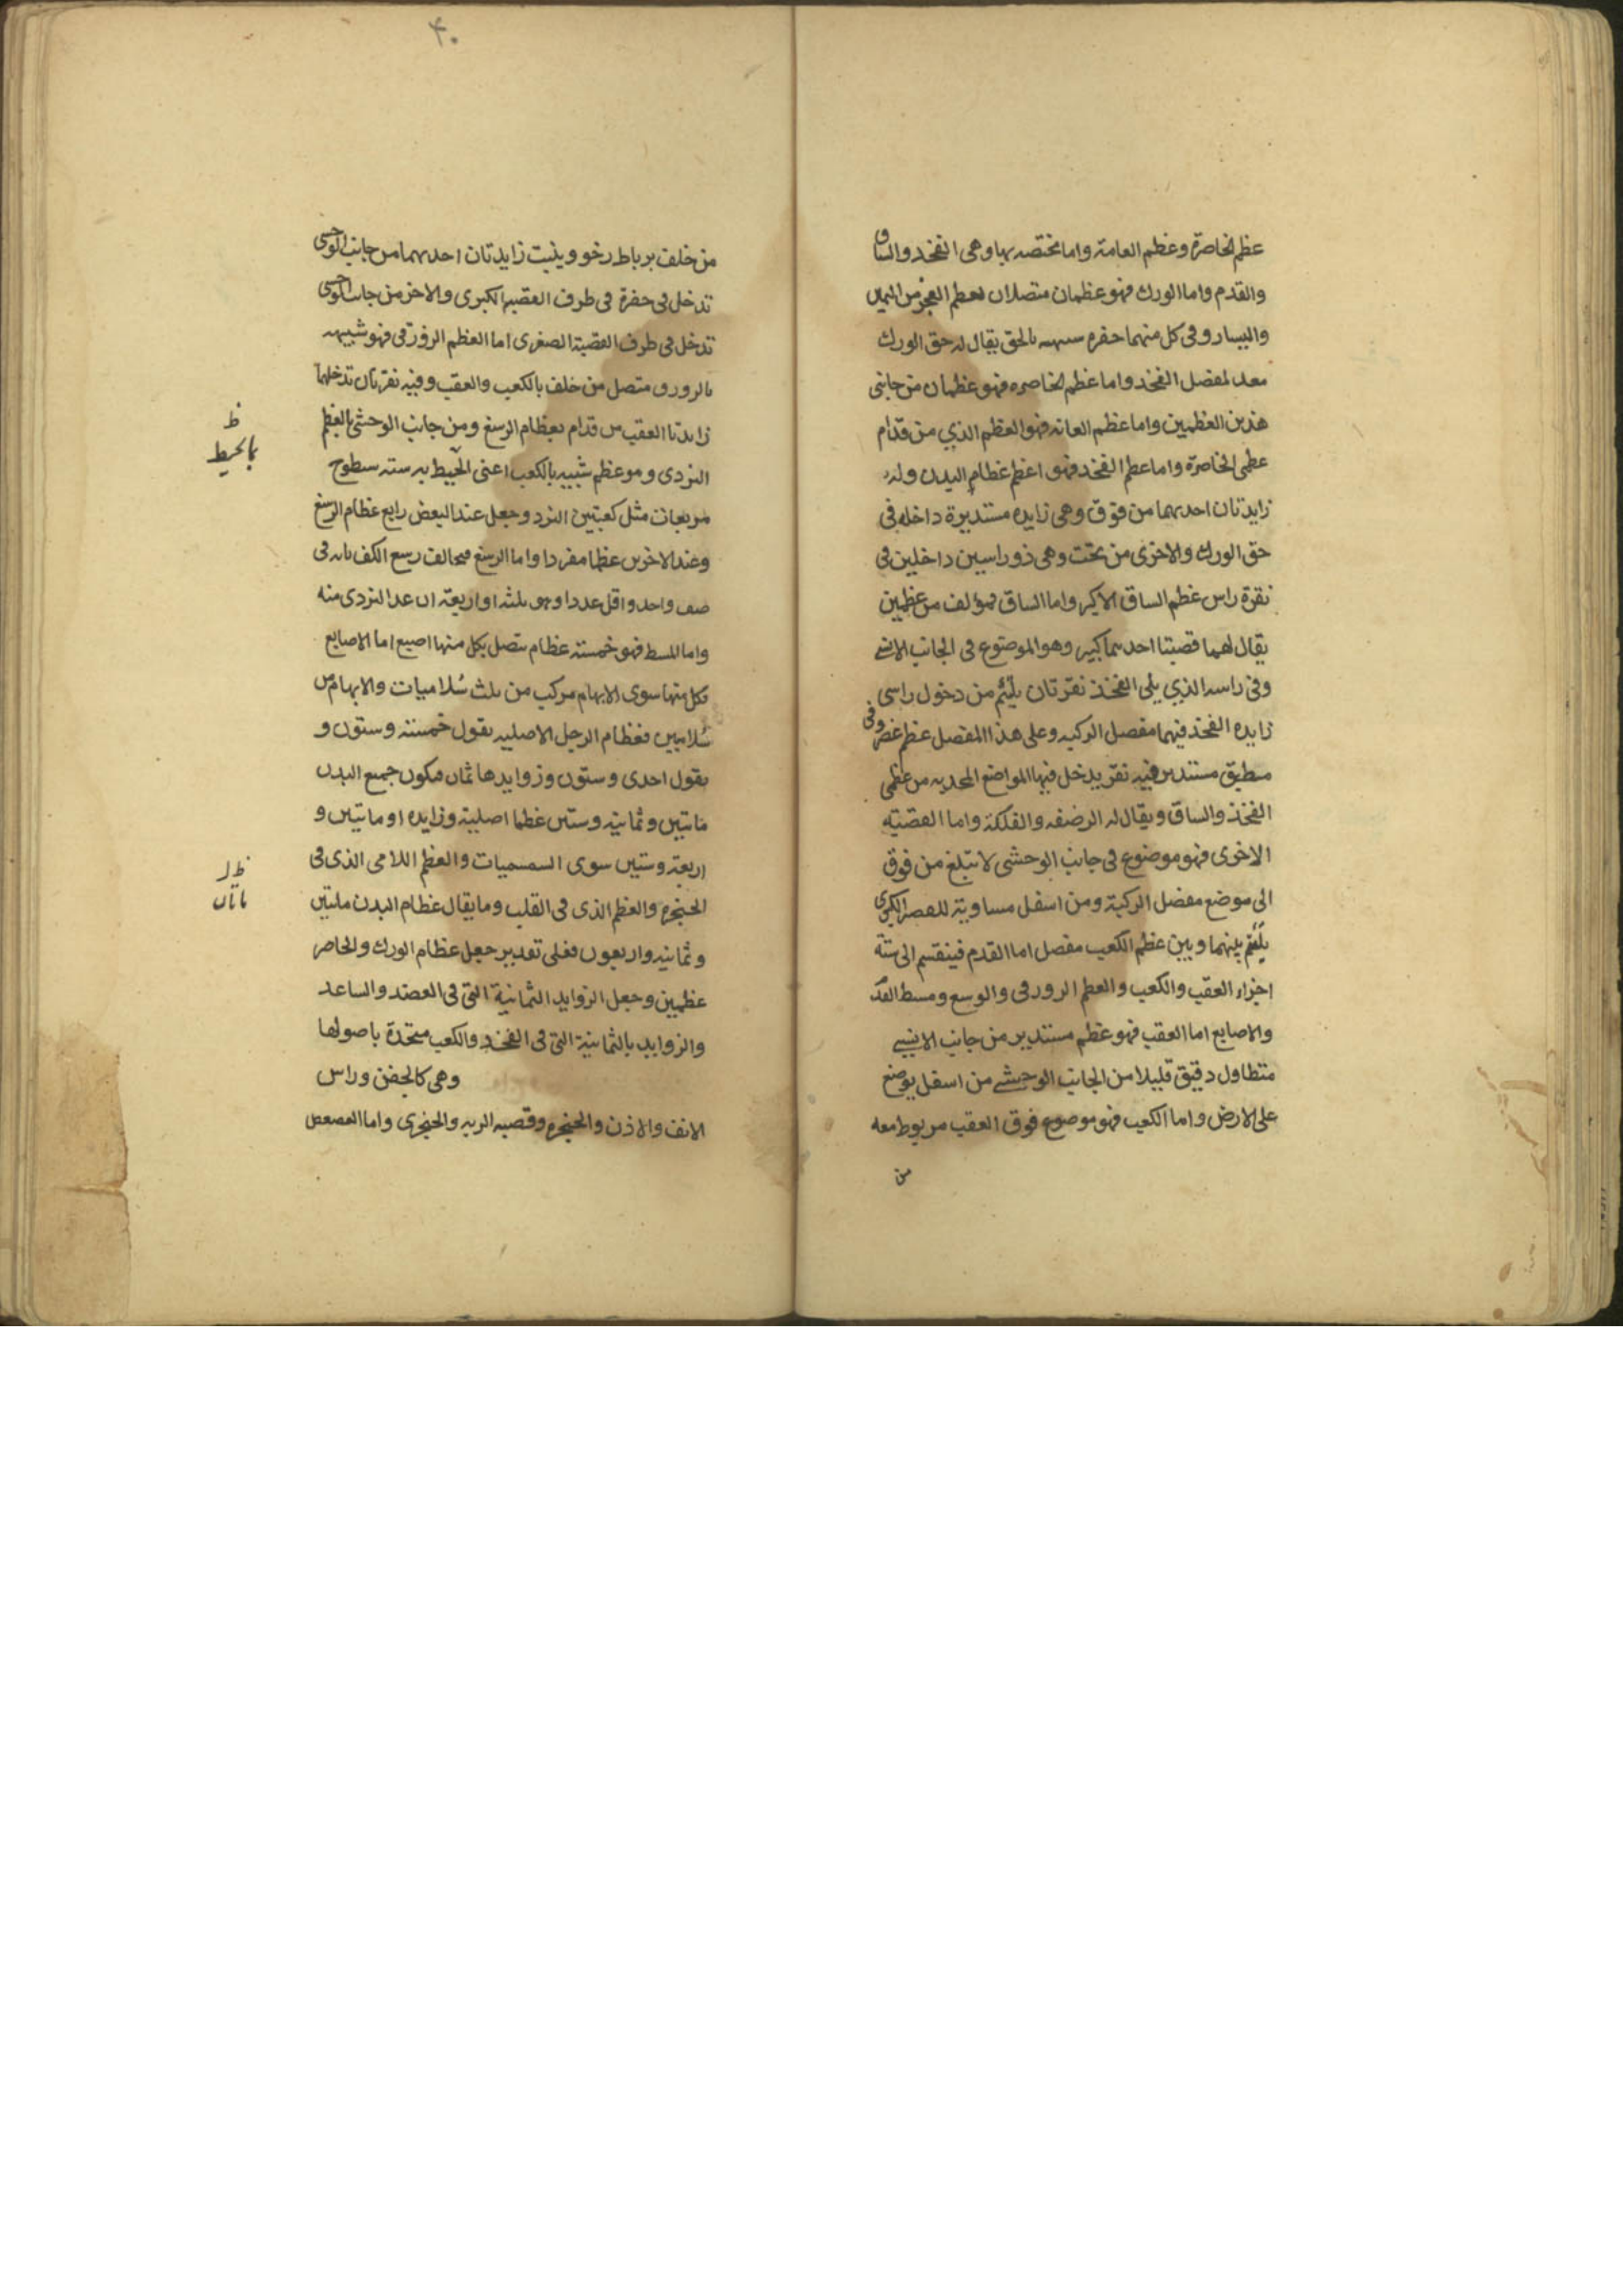 عظم الخاصرة وعظم العامة واما مختصه بها وهى الفخد والساق
والقدم واما الورك فهو عظمان متصلان بعظم العجز من اليمين
واليسار وفى كل منهما حفره شبيهه بالحق يقال له حق الورك
معد لمفصل الفخد واما عظم الخاصره فهو عظمان من جانبى
هذين العظمين واما عظم العانه فهو العظم الذي من قدام
عظمى الخاصرة واما عظم الفخد فهو اعظم عظام البدن وله
زايدتان احديهما من فوق وهى زايده مستديرة داخله فى
حق الورك والاخرى من تحت وهى ذو راسيين داخلين فى
نقرة راس عظم الساق الاكبر واما الساق فمؤلف من عظمين
يقال لهما قصبتا احديهما كبير وهو الموضوع فى الجانب الانسي
وفى راسه الذي يلى الفخذ نقرتان يلتئم من دخول راسى
زايده الفخذ فيهما مفصل الركبه وعلى هذا المفصل عظم غضروفى
مطبق مستدير فيه نقر يدخل فيها المواضع المحدبه من عظمى
الفخذ والساق ويقال له الرضفه والفلكة واما القصبته
الاخرى فهو موضوع فى جانب الوحشى لا تبلغ من فوق
الى موضع مفصل الركبة ومن اسفل مساوية للقصبه الكبرى
يلتئم بينهما وبين عظم الكعب مفصل اما القدم فينقسم الى ستة
اجزاء العقب والكعب والعظم الزورقى والرسغ ومسط القد
والاصابع اما العقب فهو عظم مستدير من جانب الانسي
متطاول دقيق قليلا من الجانب الوحشے من اسفل يوضع
على الارض واما الكعب فهو موضوع فوق العقب مربوط معه
من
۴۰
من خلف برباط رخو وينبت زايدتان احديهما من جانب الوحسى
تدخل فى حفرة فى طرف القصبه الكبرى والاخر من جانب الوحسى
تدخل فى طرف القصبة الصغرى اما العظم الزورقى فهو شبيه
بالزورق متصل من خلف بالكعب والعقب وفيه نقرتان تدخلهما
زايدتا العقب من قدام بعظام الرسغ ومن جانب الوحشى بالعظم
النردى وهو عظم شبيه بالكعب اعنى المحيط به سته سطوح
مربعات مثل كعبتين النرد وجعل عند البعض رابع عظام الرسغ
وعند الاخرين عظما مفردا واما الرسغ فيخالف رسع الكف بانه فى
صف واحد واقل عددا وهو ثلثه او اربعة ان عد النردى منه
واما المسط فهو خمسته عظام يتصل بكل منها اصبع اما الاصابع
فكل منها سوى الابهام مركب من ثلث سُلاميات والابهام من
سُلاميين فعظام الرجل الاصليه بقول خمسته وستون و
بقول احدى وستون وزوايدها ثمان فيكون جميع البدن
مائتين وثمانيه وستين عظما اصلية وزايده او مائتين و
اربعة وستين سوى السمسميات والعظم اللامى الذى فى
الحنجره والعظم الذى فى القلب وما يقال عظام البدن مائتين
وثمانيه واربعون فعلى تقدير جعل عظام الورك والخاصر
عظمين وجعل الزوايد الثمانية التى فى العضد والساعد
والزوايد بالثمانية التى فى الفخد والكعب متحدة باصولها
وهى كالجفن وراس
الانف والاذن والحنجره وقصبه الريه والحنجرى واما العصعص
ظ
بالمحيط